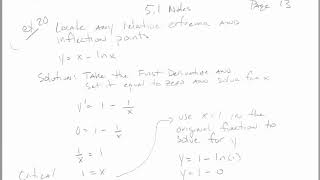 5.1 Notes
Page 13
ex 20 Locate any relative extrema and
inflection points
y = x - lnx
Solution: Take the First Derivative and
set it equal to zero and solve for x
y' = 1 - 1/x
0 = 1 - 1/x
1/x = 1
1 = x
Critical
use x=1 in the
original function to
solve for y
y = 1 - ln(1)
y = 1 - 0